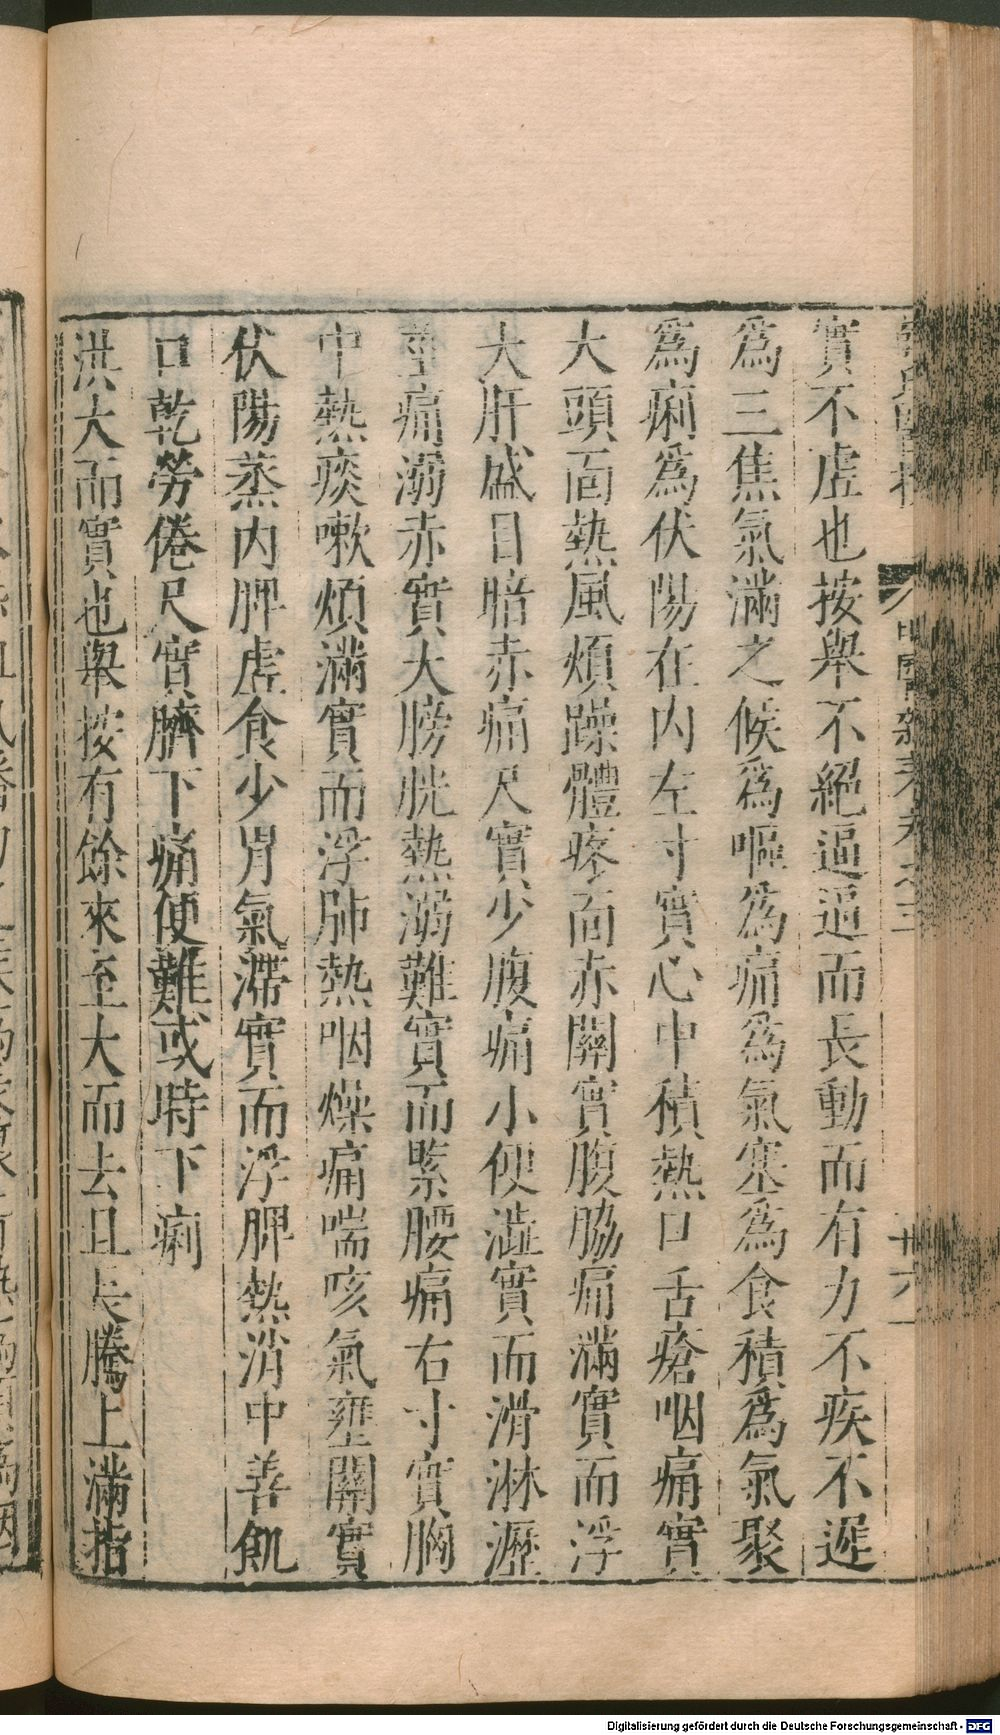 實不虛也按舉不絕逼逼而長動而有力不疾不遲
爲三焦氣滿之候爲嘔爲痛爲氣塞爲食積爲氣聚
爲痢爲伏陽在内左寸實心中積熱口舌瘡咽痛實
大頭面熱風煩躁體疼面赤關實腹脇痛滿實而浮
大肝盛目暗赤痛尺實少腹痛小便澁實而滑淋瀝
莖痛溺赤實大膀胱熱溺難實而緊腰痛右寸實胸
中熱痰嗽煩滿實而浮肺熱咽燥痛喘咳氣壅關實
伏陽蒸内脾虛食少胃氣滯實而浮脾熱消中善飢
口乾勞倦尺實臍下痛便難或時下痢
洪大而實也舉按有餘來至大而去且長騰上滿指
卅六
Digitalisierung gefördert durch die Deutsche Forschungsgemeinschaft - DFG